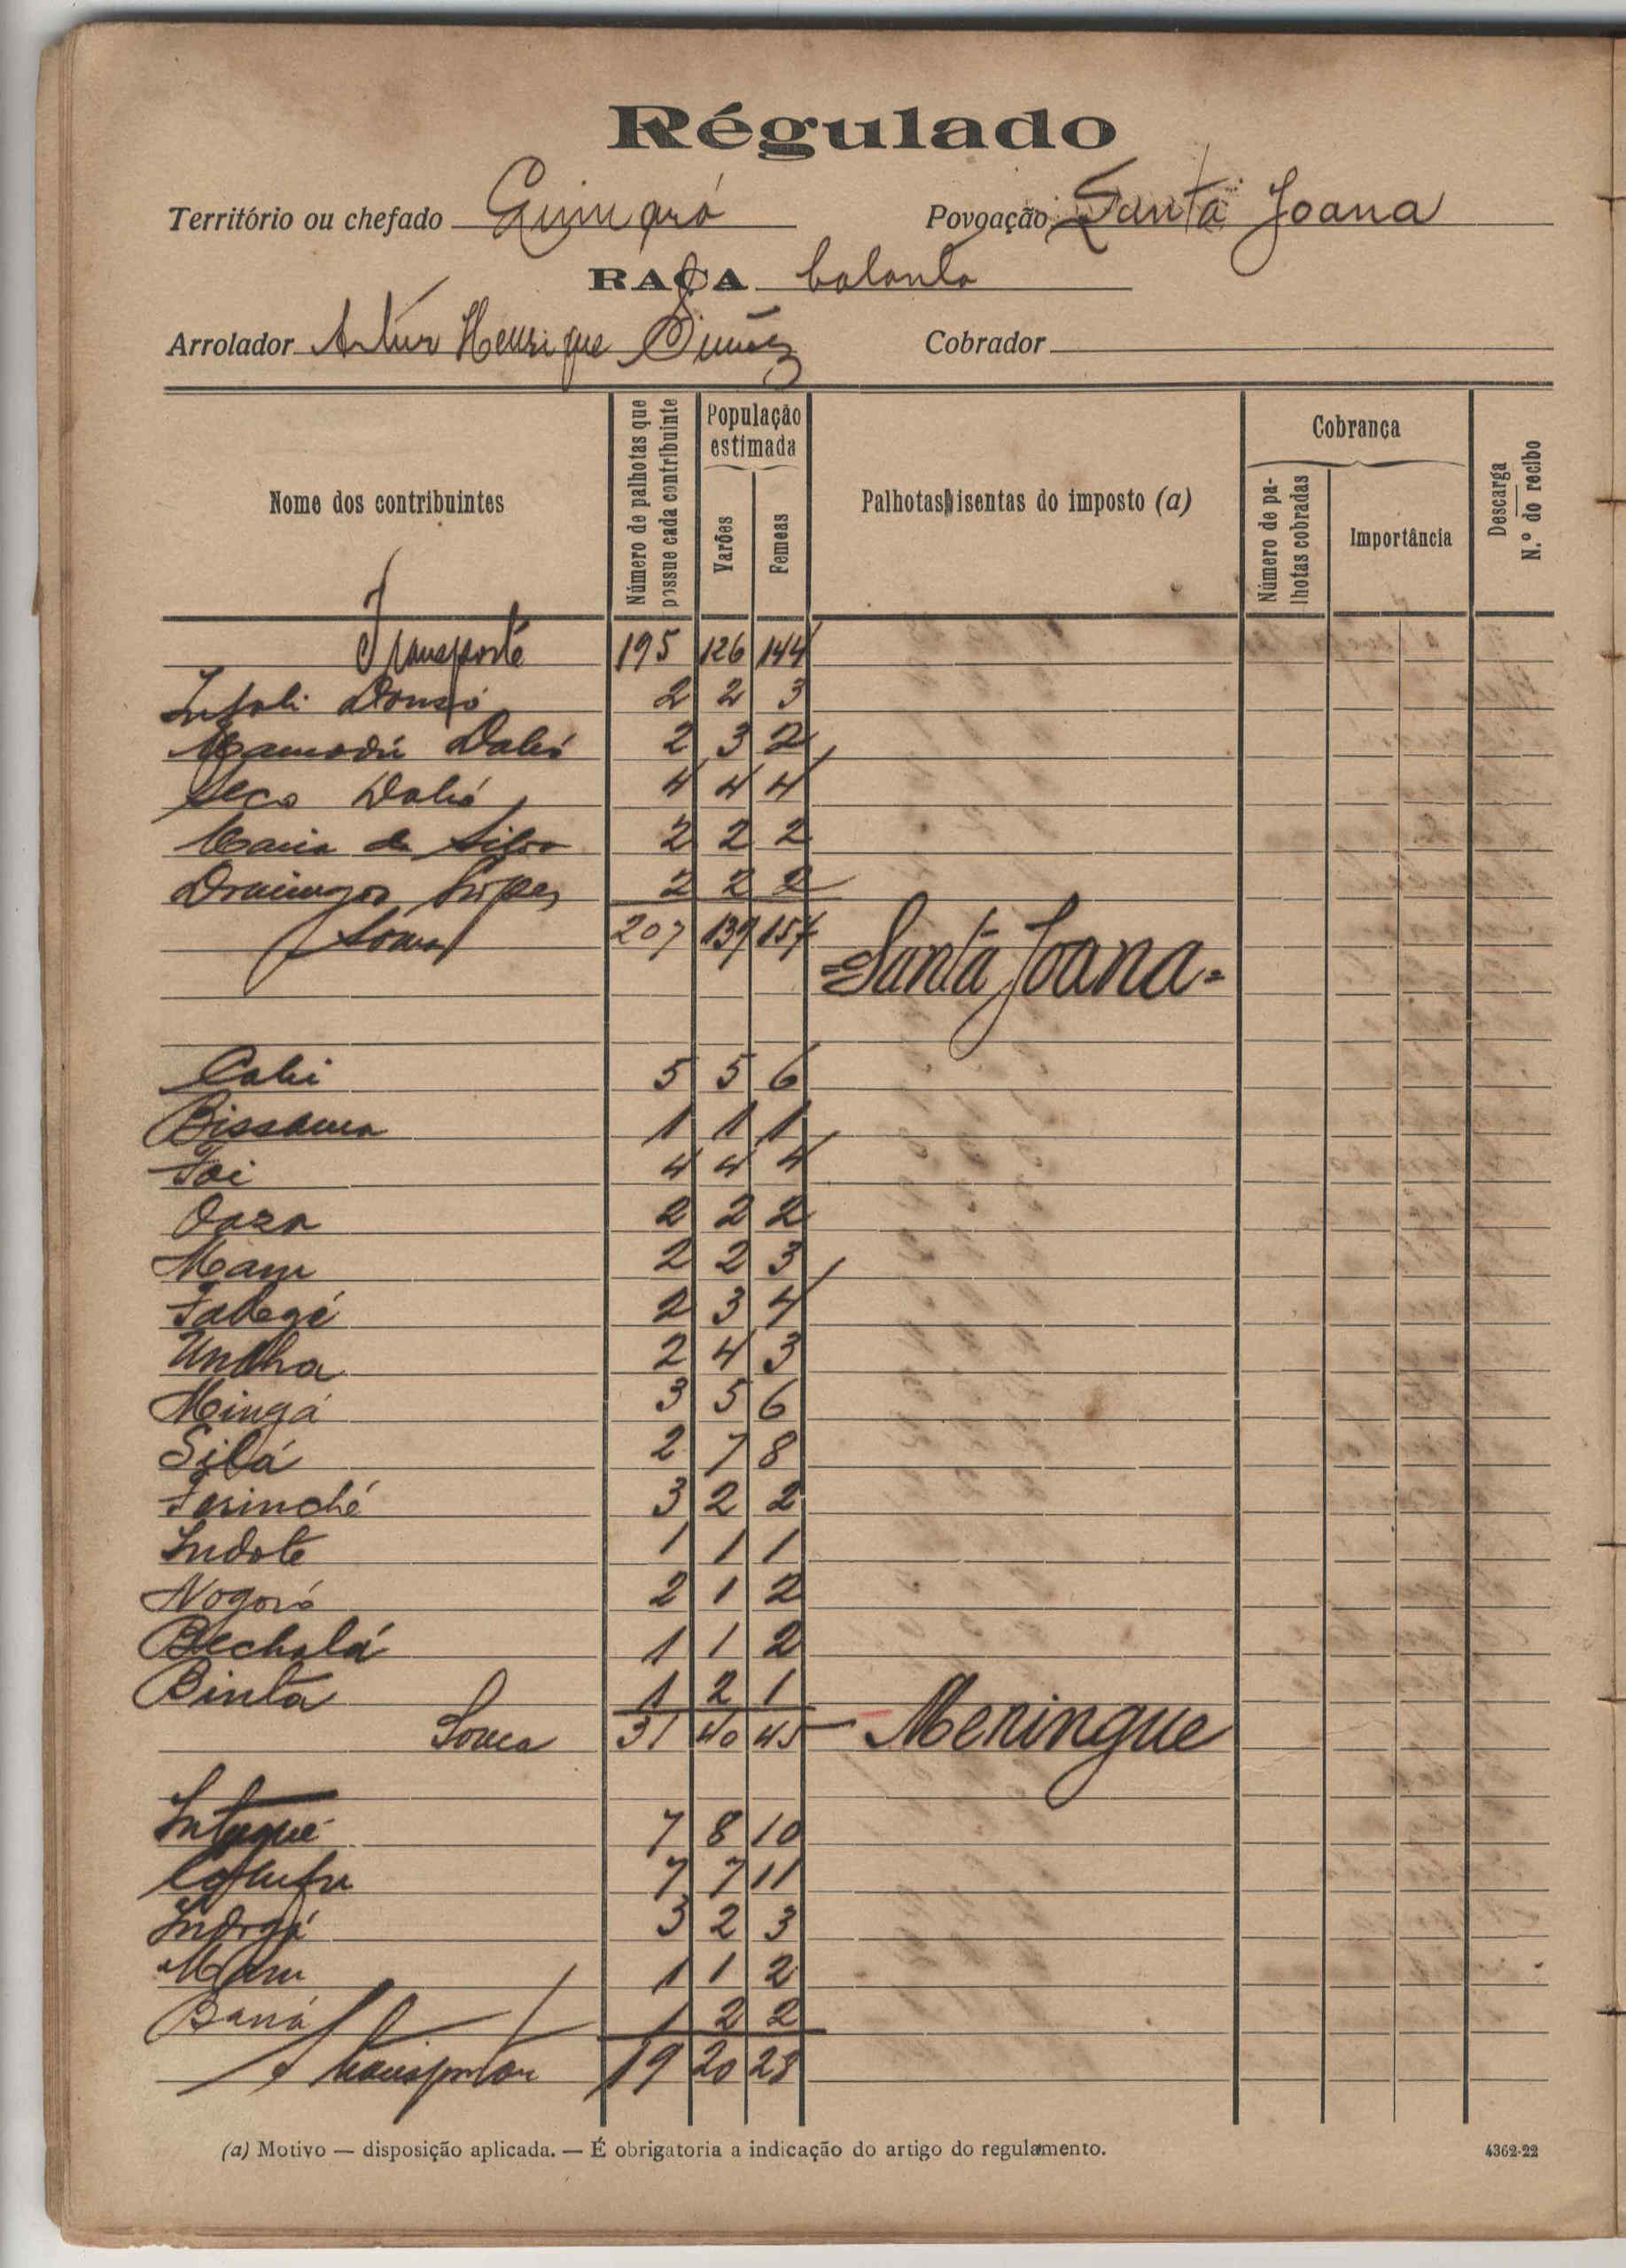 Régulado
Território ou chefado Povoação Santa Joana
RAÇA balanta
Arrolador Artur Henrique Cobrador
Nome dos contribuintes
Número de palhotas que possue cada contribuinte
População estimada
Varões
Femeas
Palhotas isentas do imposto (a)
Cobrança
Número de palhotas cobradas
Importância
Descarga
N.º do recibo
Transporte 195 126 144
2 2 3
Mamadú Dabó 2 3 2
Seco Dabó 4 4 4
Maria da Silva 2 2 2
Domingos Lopes 2 2 2
Soma 207 139 157
=Santa Joana=
Cabi 5 5 6
Bissauna 1 1 1
Foi 4 4 4
2 2 2
Mam 2 2 3
Fabegé 2 3 4
2 4 3
Mingá 3 5 6
Silá 2 7 8
Ferinché 3 2 2
Indote 1 1 1
Nogoró 2 1 2
Bechalá 1 1 2
Binta 1 2 1
Soma 31 40 45 — Meningue
7 8 10
7 7 11
3 2 3
1 1 2
Baná 1 2 2
A transportar 19 20 28
(a) Motivo — disposição aplicada. — É obrigatoria a indicação do artigo do regulamento.
4362-22